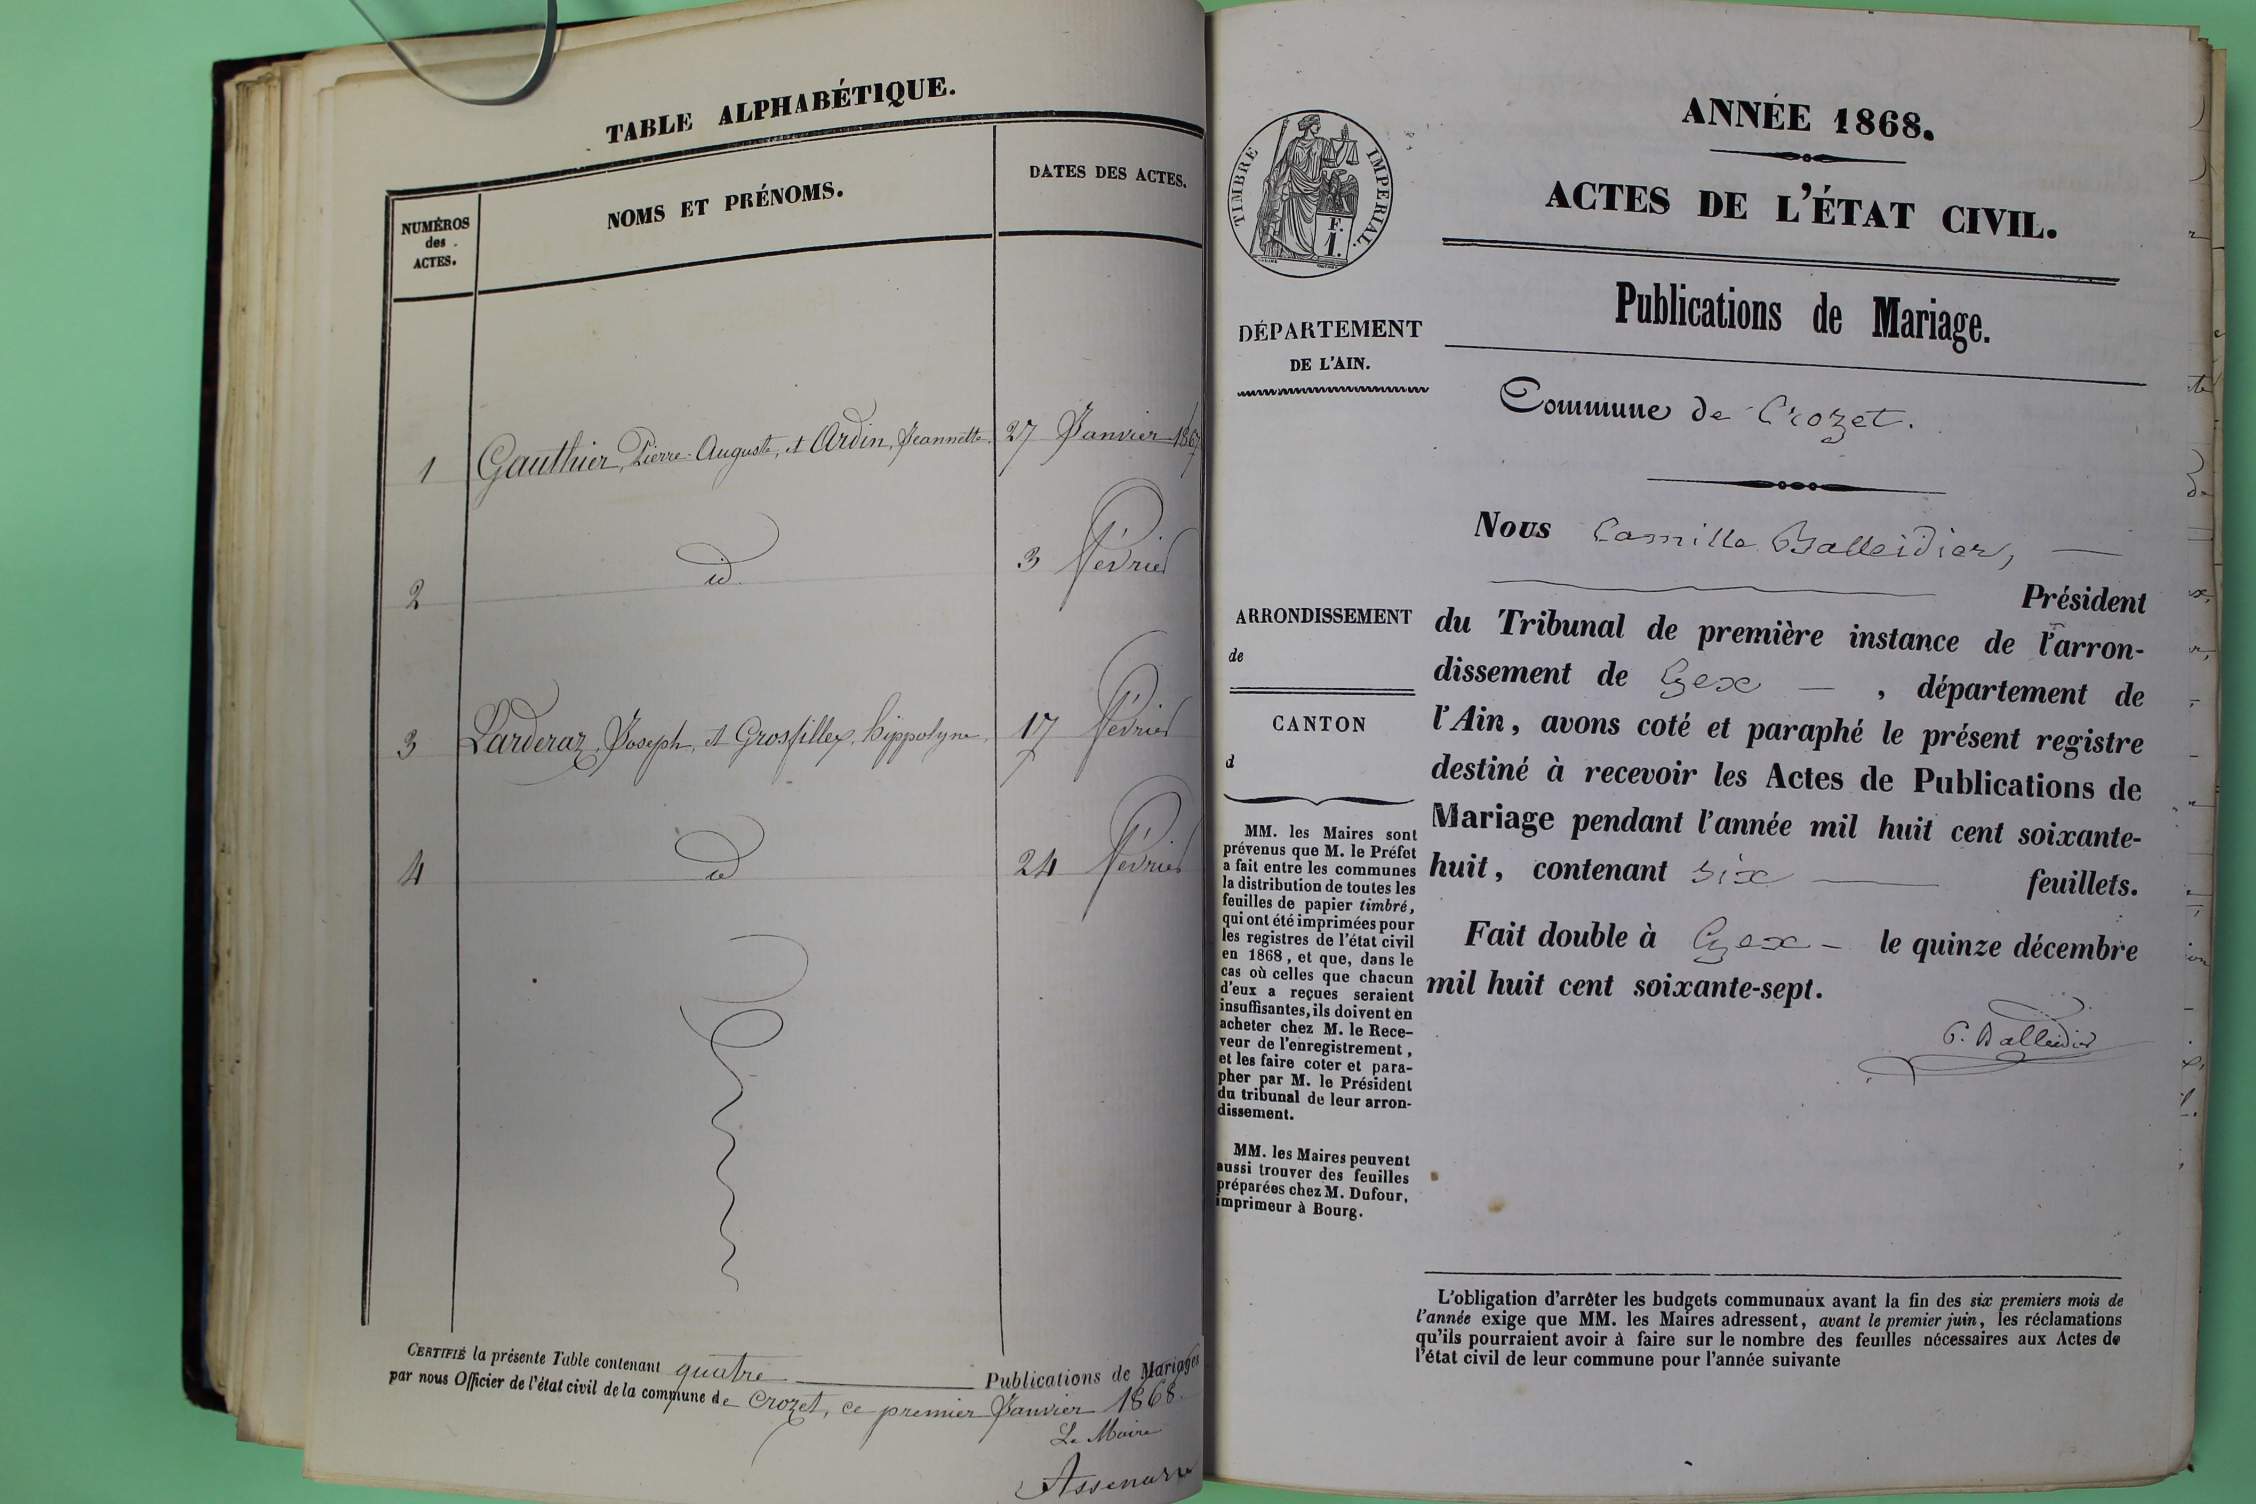 TABLE ALPHABÉTIQUE.
NUMÉROS
des
ACTES.
NOMS ET PRÉNOMS.
DATES DES ACTES.
1 Gauthier, Pierre-Auguste, et Ardin, Jeannette. 27 Janvier 1867
2 id. 3 février
3 Larderaz, Joseph, et Grosfilley, hippolyne. 17 février
4 id 24 février
CERTIFIÉ la présente Table contenant quatre Publications de Mariages
par nous Officier de l'état civil de la commune de Crozet, ce premier Janvier 1868.
Le Maire
TIMBRE IMPÉRIAL.
F.
1.
DÉPARTEMENT
DE L'AIN.
ARRONDISSEMENT
de
CANTON
d
MM. les Maires sont
prévenus que M. le Préfet
a fait entre les communes
la distribution de toutes les
feuilles de papier timbré,
qui ont été imprimées pour
les registres de l'état civil
en 1868, et que, dans le
cas où celles que chacun
d'eux a reçues seraient
insuffisantes, ils doivent en
acheter chez M. le Rece-
veur de l'enregistrement,
et les faire coter et para-
pher par M. le Président
du tribunal de leur arron-
dissement.
MM. les Maires peuvent
aussi trouver des feuilles
préparées chez M. Dufour,
imprimeur à Bourg.
ANNÉE 1868.
ACTES DE L'ÉTAT CIVIL.
Publications de Mariage.
Commune de Crozet.
Nous Camille Balleidier, —
Président
du Tribunal de première instance de l'arron-
dissement de Gex — , département de
l'Ain, avons coté et paraphé le présent registre
destiné à recevoir les Actes de Publications de
Mariage pendant l'année mil huit cent soixante-
huit, contenant six — feuillets.
Fait double à Gex — le quinze décembre
mil huit cent soixante-sept.
C. Balleidier
L'obligation d'arrêter les budgets communaux avant la fin des six premiers mois de
l'année exige que MM. les Maires adressent, avant le premier juin, les réclamations
qu'ils pourraient avoir à faire sur le nombre des feuilles nécessaires aux Actes de
l'état civil de leur commune pour l'année suivante